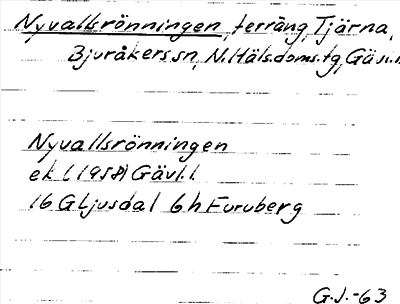 Nyvallsrönningen, terräng, Tjärna,
Bjuråkers sn, N.Häls.doms.tg, Gävl.l.
Nyvallsrönningen
ek (1958) Gävl.l.
16 G Ljusdal 6h Furuberg
G.J.-63